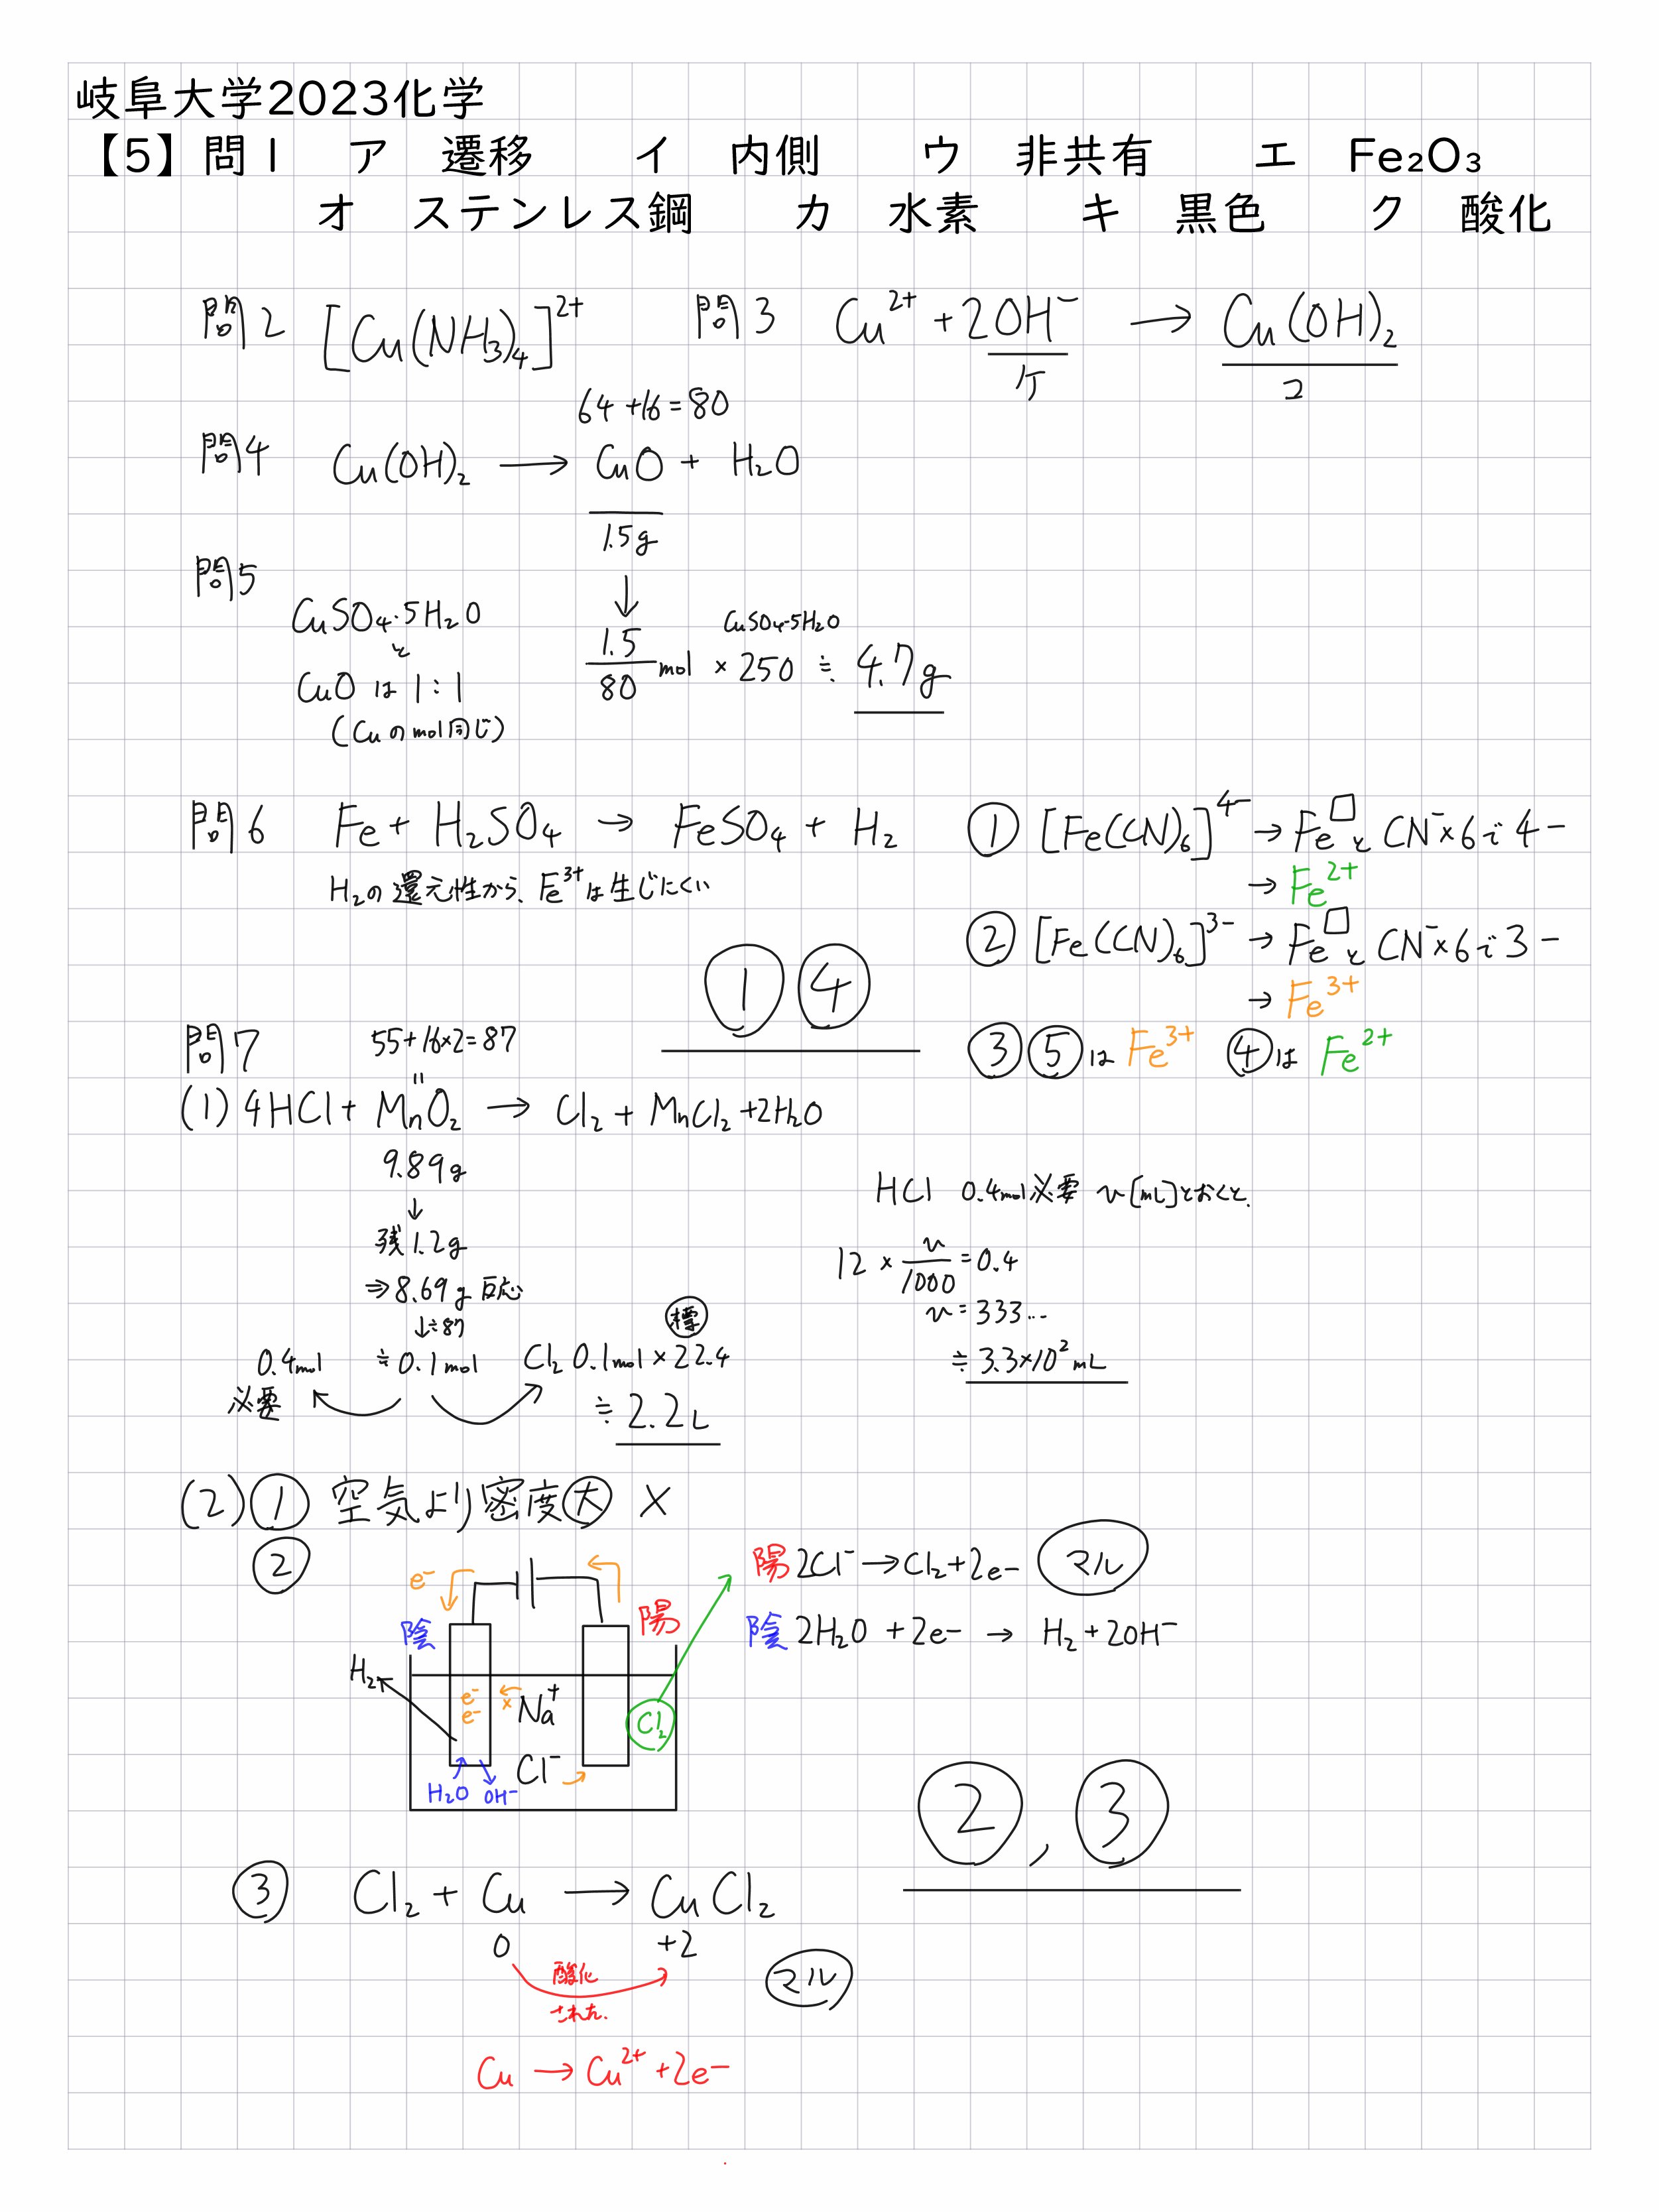 岐阜大学2023化学
【5】問1 ア 遷移 イ 内側 ウ 非共有 エ Fe₂O₃
オ ステンレス鋼 カ 水素 キ 黒色 ク 酸化
問2 [Cu(NH₃)₄]²⁺ 問3 Cu²⁺+2OH⁻ → Cu(OH)₂
ケ コ
64+16=80
問4 Cu(OH)₂ → CuO + H₂O
1.5g
問5
CuSO₄・5H₂O
と
CuOは1:1
(Cuのmol同じ)
↓
1.5/80 mol × 250 ≒ 4.7g
CuSO₄・5H₂O
問6 Fe + H₂SO₄ → FeSO₄ + H₂
H₂の還元性から、Fe³⁺は生じにくい
① ④
① [Fe(CN)₆]⁴⁻ → Fe□とCN⁻×6で4−
→ Fe²⁺
② [Fe(CN)₆]³⁻ → Fe□とCN⁻×6で3−
→ Fe³⁺
③⑤はFe³⁺ ④はFe²⁺
問7 55+16×2=87
(1) 4HCl + MnO₂ → Cl₂ + MnCl₂ + 2H₂O
9.89g
↓
残1.2g
⇒8.69g反応
↓÷87
≒0.1mol
0.4mol
必要
標
Cl₂ 0.1mol×22.4
≒2.2L
HCl 0.4mol必要 v[mL]とおくと、
12 × v/1000 = 0.4
v=333…
≒3.3×10²mL
(2)① 空気より密度大 ×
②
e⁻
陰
陽
H₂
e⁻
e⁻
× Na⁺
Cl₂
Cl⁻
H₂O OH⁻
陽 2Cl⁻ → Cl₂+2e⁻ マル
陰 2H₂O + 2e⁻ → H₂ + 2OH⁻
②, ③
③ Cl₂ + Cu → CuCl₂
0 +2
酸化
された。
マル
Cu → Cu²⁺ + 2e⁻